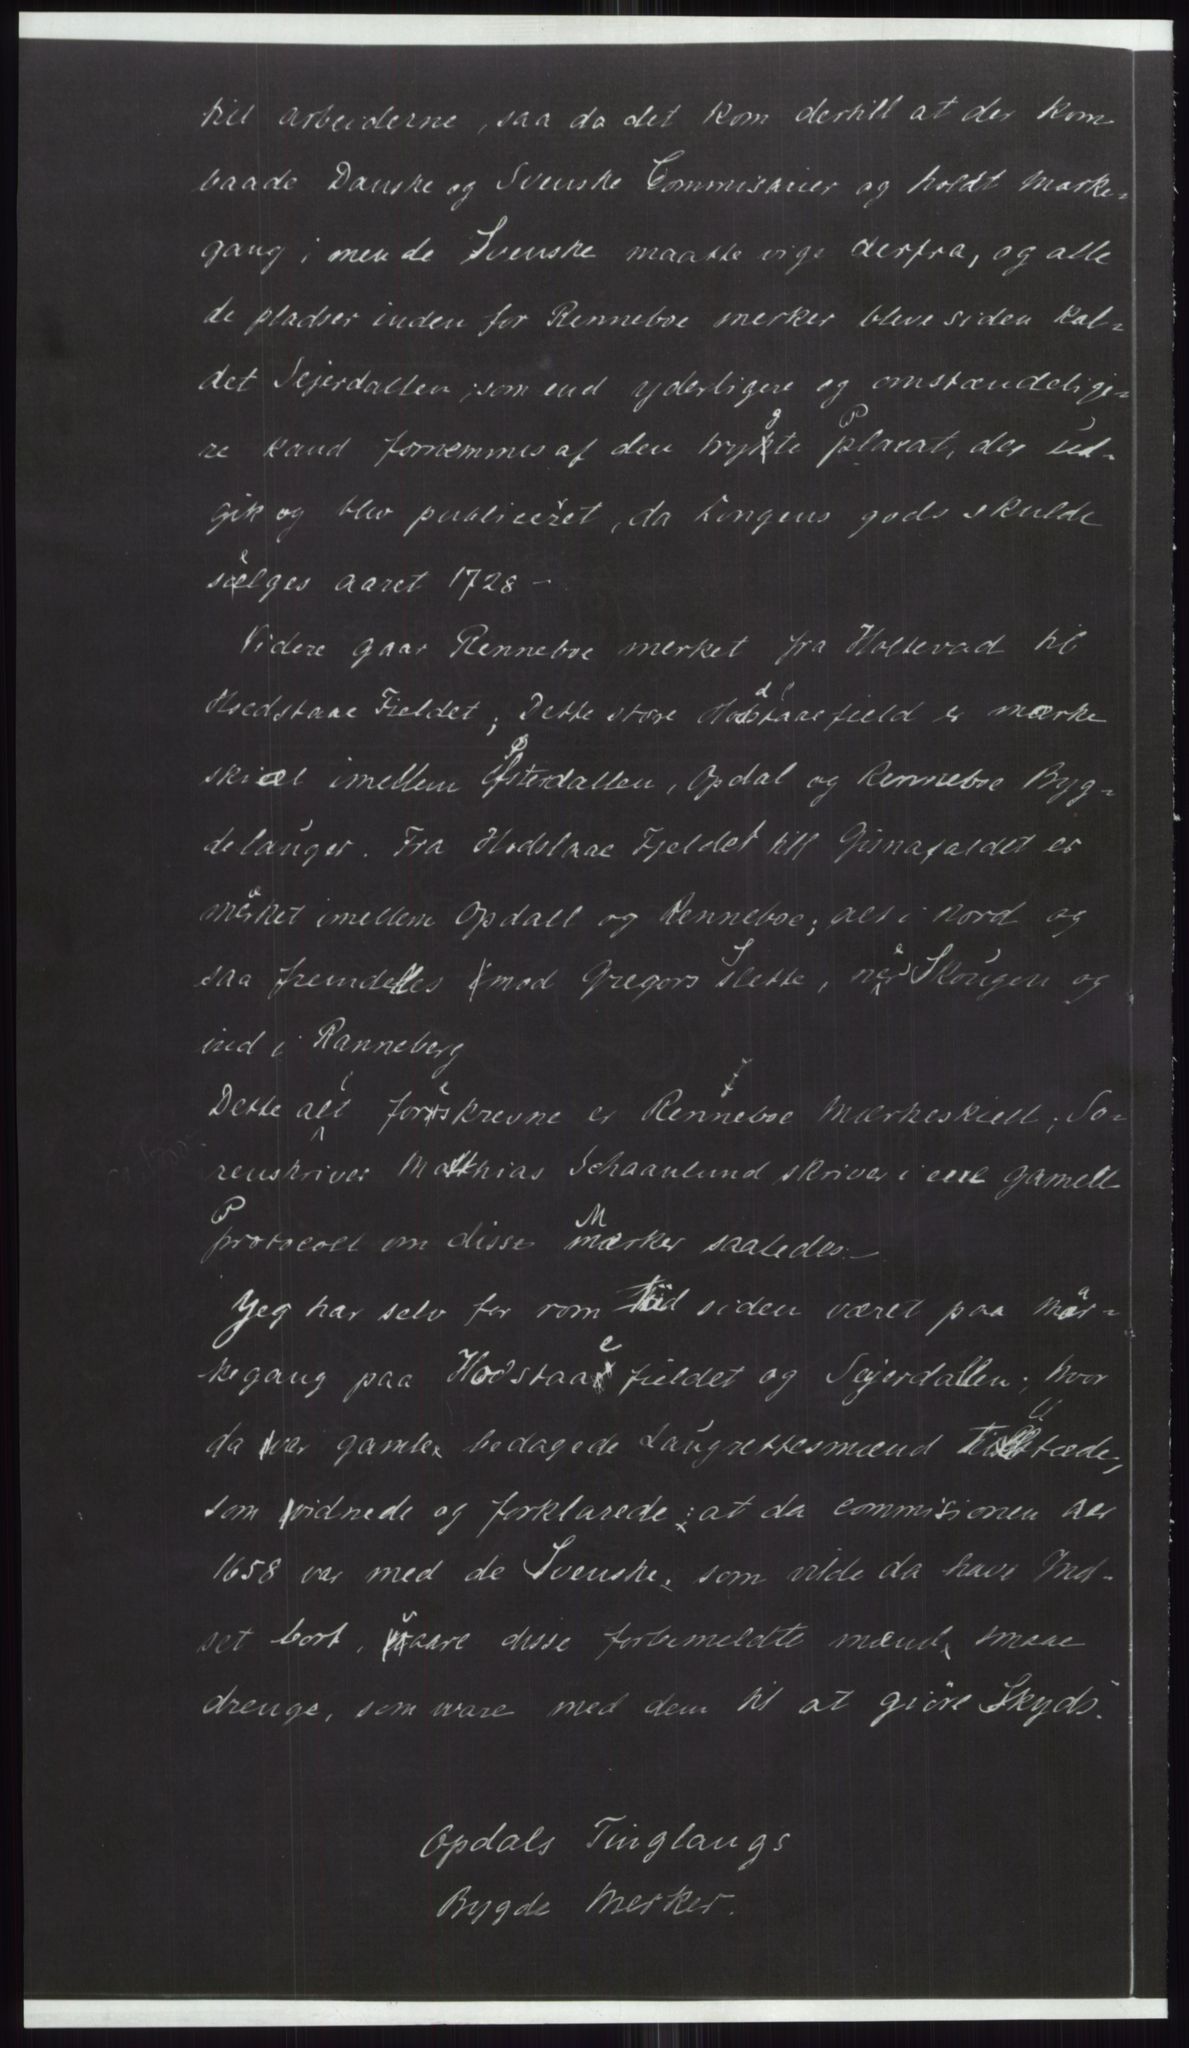 til arbeiderne, saa da det kom dertill at der kom
baade Danske og Svenske Commisarier og holdt Marke-
gang; men de Svenske maatte vige derfra, og alle
de pladser inden for Renneboe merker bleve siden kal-
det Sejerdallen; som end yderligere og omstændelige-
re kand fornemmes af den trygte Placat, der ud-
gik og blev publiceret, da Kongens gods skulde
selges aaret 1728 -
Videre gaar Renneboe merket fra Holtevad til
Hoedstaae Fieldet; Dette store Hodstaaefield er mærke
skiæl imellem Østerdallen, Opdal og Renneboe Byg-
delauger. Fra Hodstaae Fjeldet till Gisnafaldet er
mærket imellem Opdall og Renneboe; alt i Nord og
saa fremdelles mod Gregors Slette, nær Skougen og
ind i Ranneberg
Dette alt foreskrevne er Renneboe Mærkeskiell; So-
renskriver Matthias Schaanlund skriver i een gamell
Protocoll om disse Mærker saaledes:-
Jeg har selv for rom tiid siden været paa Mær-
kegang paa Hodstaae fieldet og Sejerdallen; hvor
da var gamle bedagede Laugrettesmænd tilstæde,
som vidnede og forklarede: at da commisionen der
1658 var med de Svenske, som vilde da have Ind-
set bort, vaare disse forbemeldte mænd smaae
drenge, som vare med dem til at giöre Skyds.
Opdals Tinglaugs
Bygde Merker.